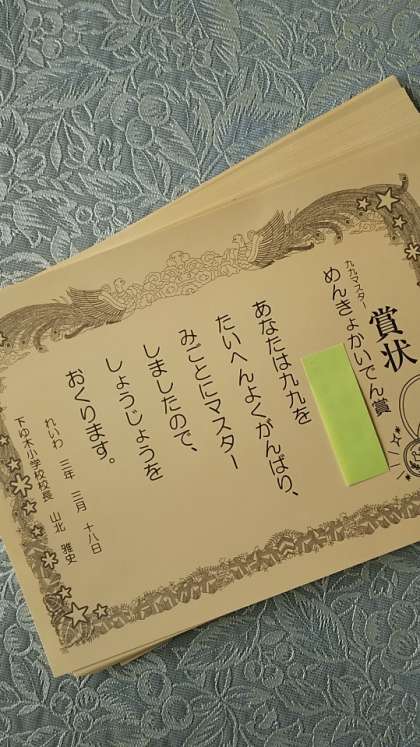 賞状
九九マスター
めんきょかいでん賞
あなたは九九を
たいへんよくがんばり、
みごとにマスター
しましたので、
しょうじょうを
おくります。
れいわ 三年 三月 十八日
下ゆ木小学校校長 山北 雅史